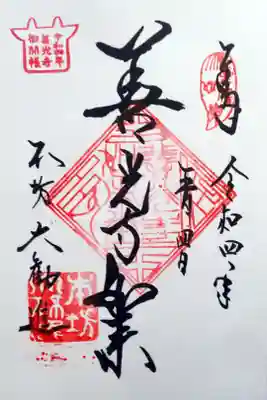 奉拝
令和四年
五月四日
善光寺如来
本坊大勧進
令和四年
善光寺
御開帳
本坊